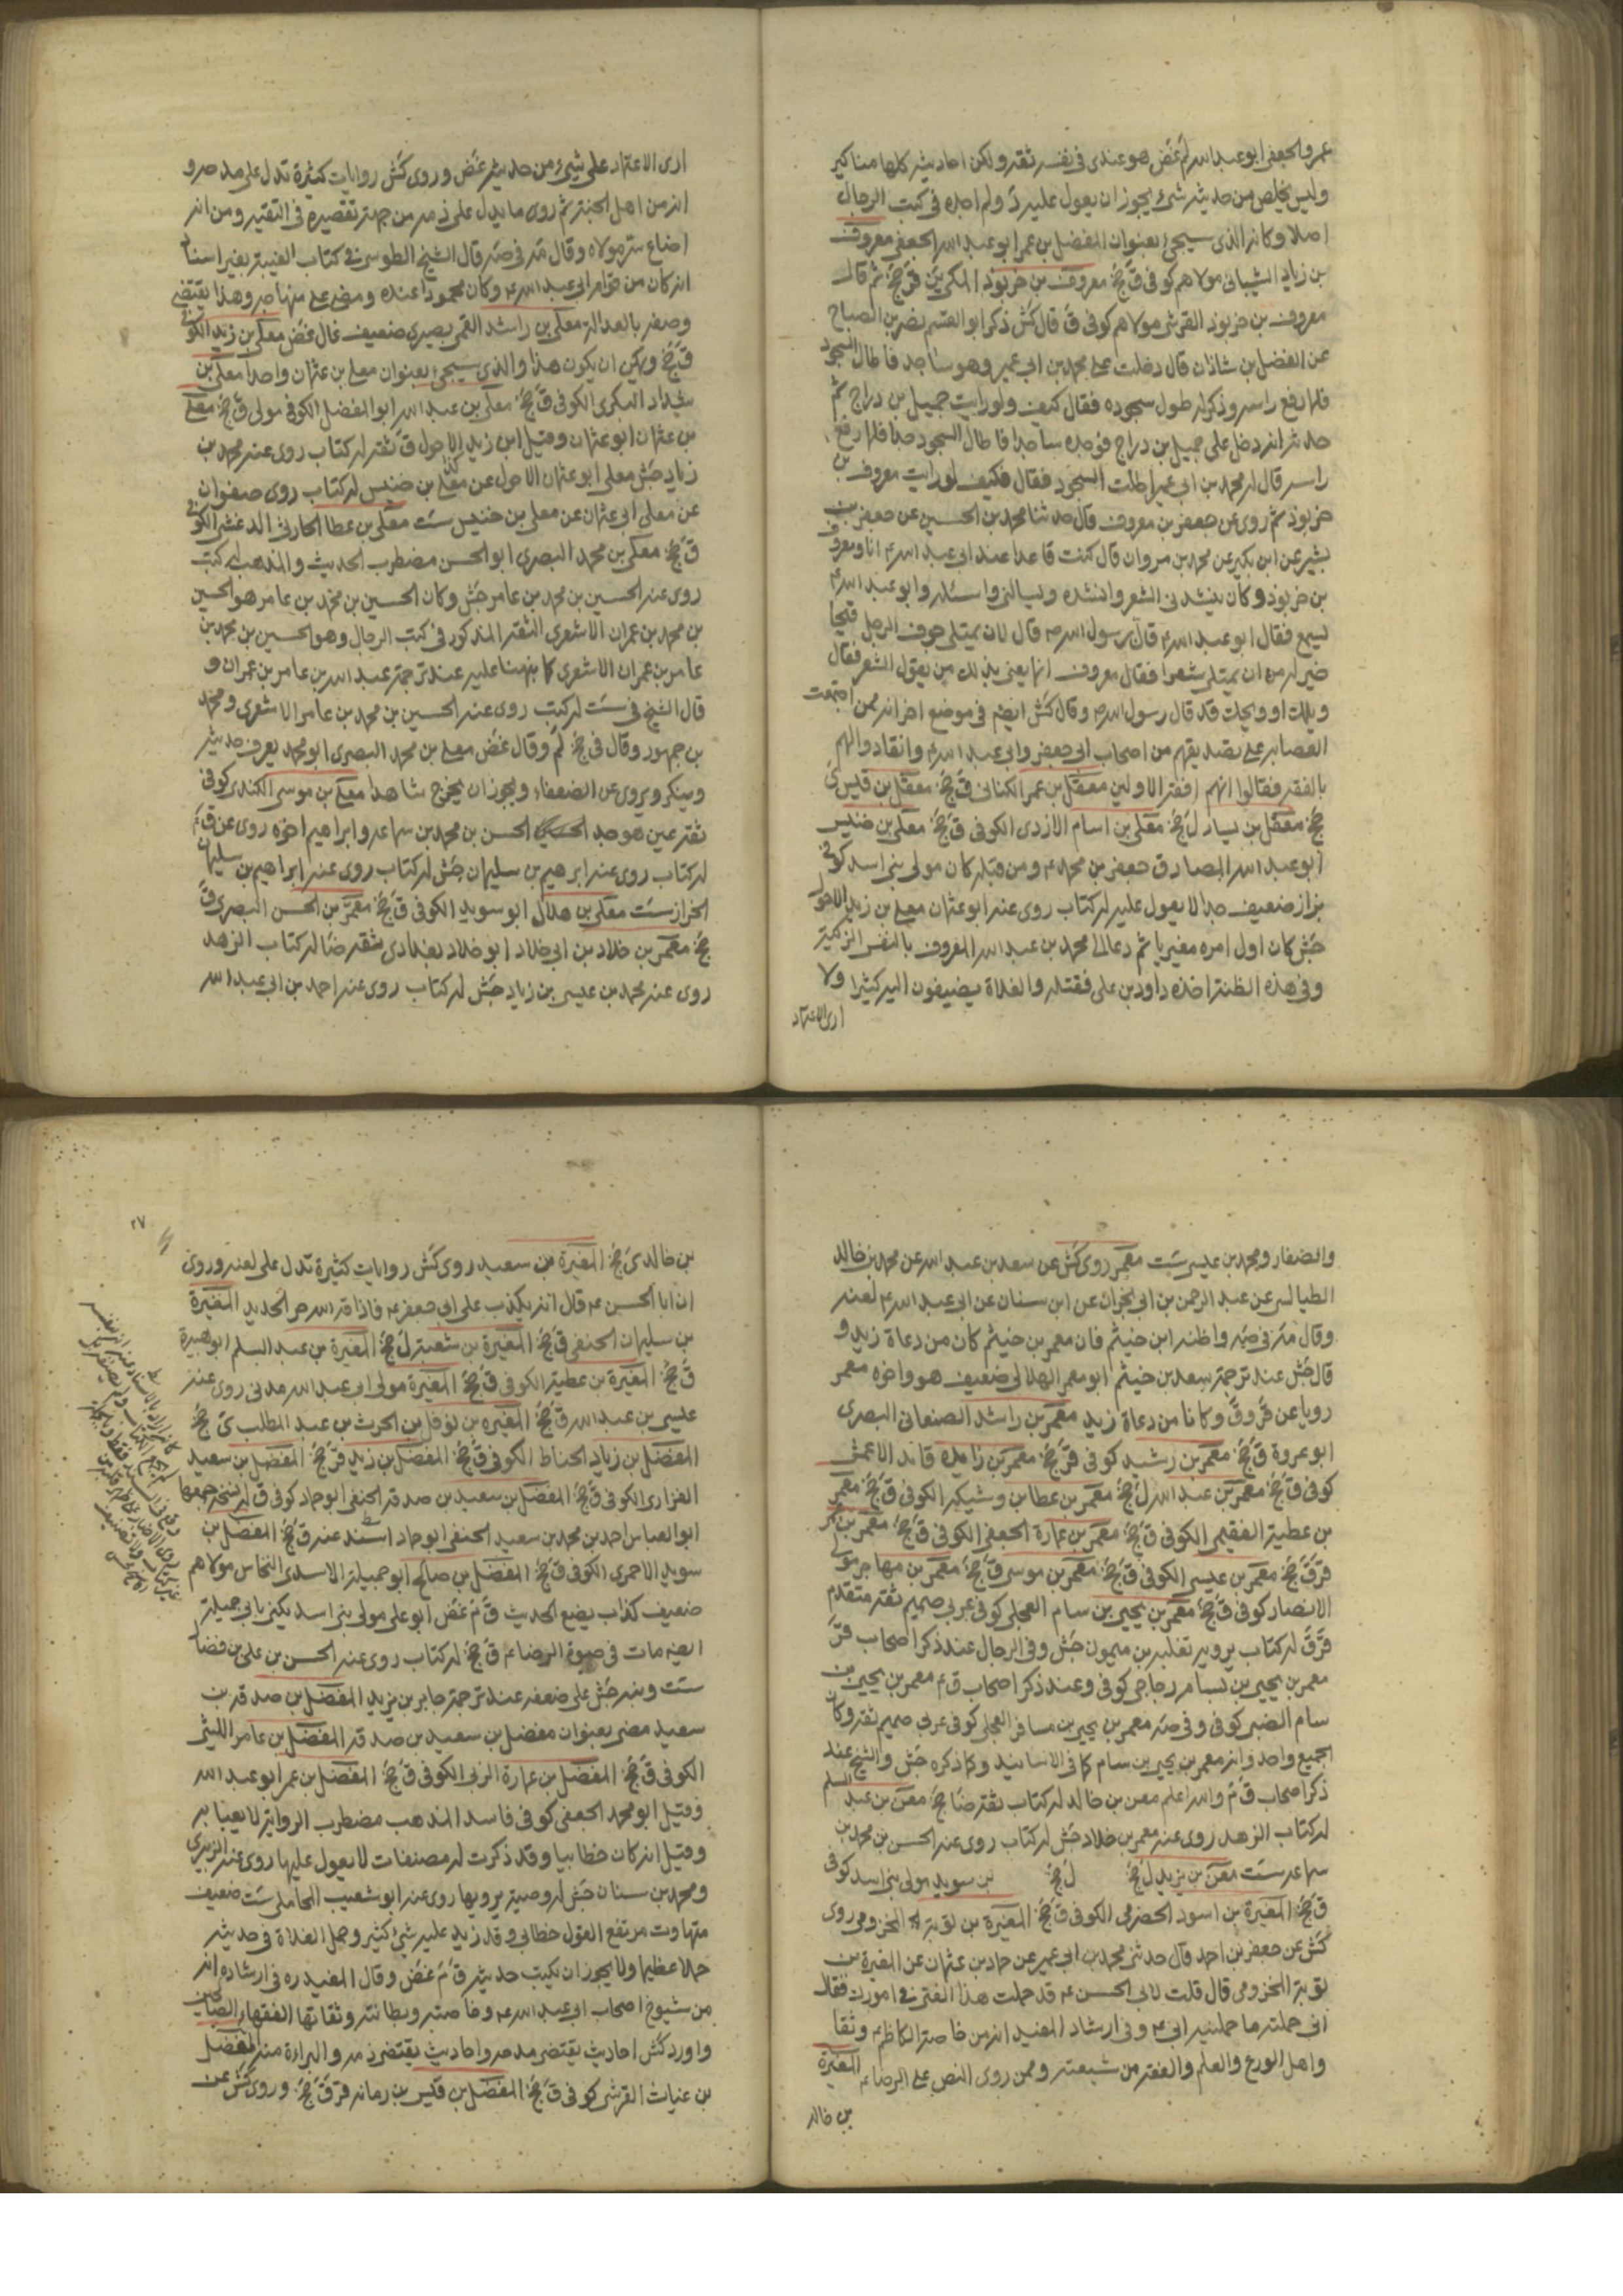 عمرو الجعفى ابو عبد الله لم غض هو عندى فى نفسه ثقة ولكن احاديثه كلها مناكير
وليس يخلص من حديثه شىء يجوز ان يعول عليه د ولم اجده فى كتب الرجال
اصلا وكانه الذى سيجىء بعنوان المفضل بن عمر ابو عبد الله الجعفى معروف
بن زياد الشيبانى مولاهم كوفى ق جخ معروف بن خربوذ المكى ين قر جخ ثم قال
معروف بن خربوذ القرشى مولاهم كوفى ق قال كش ذكر ابو القسم نصر بن الصباح
عن الفضل بن شاذان قال دخلت على محمد بن ابى عمير وهو ساجد فاطال السجود
فلما رفع راسه وذكر له طول سجوده فقال كيف ولو رايت جميل بن دراج ثم
حدثه انه دخل على جميل بن دراج فوجده ساجدا فاطال السجود جدا فلما رفع
راسه قال له محمد بن ابى عمير اطلت السجود فقال فكيف لو رايت معروف بن
خربوذ ثم روى عن جعفر بن معروف قال حدثنا محمد بن الحسين عن جعفر بن
بشير عن ابن بكير عن محمد بن مروان قال كنت قاعدا عند ابى عبد الله ع انا ومعروف
بن خربوذ وكان ينشدنى الشعر وانشده ويسالنى واسئله وابو عبد الله ع
يسمع فقال ابو عبد الله ع قال رسول الله ص قال لان يمتلى جوف الرجل قيحا
خير له من ان يمتلى شعرا فقال معروف انما يعنى بذلك من يقول الشعر فقال
ويلك او ويحك قد قال رسول الله ص وقال كش ايضم فى موضع اخر انه ممن اجتمعت
العصابه على تصديقهم من اصحاب ابى جعفر وابى عبد الله ع وانقادوا لهم
بالفقه فقالوا انهم افقه الاولين معقل بن عمر الكنانى ق جخ معقل بن قيس ى
جخ معقل بن يسار ل جخ معلى بن اسام الازدى الكوفى ق جخ معلى بن خنيس
ابو عبد الله الصادق جعفر بن محمد ع ومن قبله كان مولى بنى اسد كوفى
بزاز ضعيف جدا لا يعول عليه له كتاب روى عنه ابو عثمان معلى بن زيد الاحول
جش كان اول امره مغيريا ثم دعا الى محمد بن عبد الله المعروف بالنفس الزكية
وفى هذه الظنة اخذه داود بن على فقتله والغلاة يضيفون اليه كثيرا ولا
ارى الاعتماد
ارى الاعتماد على شىء من حديثه غض وروى كش روايات كثيرة تدل على مدحه و
انه من اهل الجنة ثم روى ما يدل على ذمه من جهة تقصيره فى التقية ومن انه
اضاع سر مولاه وقال مه فى صه قال الشيخ الطوسى فى كتاب الغيبة بغير اسناد
انه كان من قوام ابى عبد الله ع وكان محمودا عنده ومضى على منهاجه وهذا يقتضى
وصفه بالعدالة معلى بن راشد القمى بصيرى ضعيف غال غض معلى بن زيد الكوفى
ق جخ ويمكن ان يكون هذا والذى سيجىء بعنوان معلى بن عثمان واحدا معلى بن
شداد البكرى الكوفى ق جخ معلى بن عبد الله ابو الفضل الكوفى مولى ق جخ معلى
بن عثمان ابو عثمان وقيل ابن زيد الاحول ق ثقة له كتاب روى عنه محمد بن
زياد جش معلى ابو عثمان الاحول عن معلى بن خنيس له كتاب روى صفوان
عن معلى ابى عثمان عن معلى بن خنيس ست معلى بن عطا الحارثى الدغشى الكوفى
ق جخ معلى بن محمد البصرى ابو الحسن مضطرب الحديث والمذهب له كتب
روى عنه الحسين بن محمد بن عامر جش وكان الحسين بن محمد بن عامر هو الحسين
بن محمد بن عمران الاشعرى الثقة المذكور فى كتب الرجال وهو الحسين بن محمد بن
عامر بن عمران الاشعرى كما نبهنا عليه عند ترجمة عبد الله بن عامر بن عمران و
قال الشيخ فى ست له كتب روى عنه الحسين بن محمد بن عامر الاشعرى ومحمد
بن جمهور وقال فى جخ لم وقال غض معلى بن محمد البصرى ابو محمد يعرف حديثه
وينكر ويروى عن الضعفاء ويجوز ان يخرج شاهدا معلى بن موسى الكندى كوفى
ثقة عين هو جد الحسن بن محمد بن سماعه وابراهيم اخوه روى عن ق م
له كتاب روى عنه ابرهيم بن سليمان جش له كتاب روى عنه ابراهيم بن سليمان
الخزاز ست معلى بن هلال ابو سويد الكوفى ق جخ معمر بن الحسن البصرى ق
جخ معمر بن خلاد بن ابى خلاد ابو خلاد بغدادى ثقة ضا له كتاب الزهد
روى عنه محمد بن عيسى بن زياد جش له كتاب روى عنه احمد بن ابى عبد الله
والصفار ومحمد بن عيسى ست معمر روى كش عن سعد بن عبد الله عن محمد بن خالد
الطيالسى عن عبد الرحمن بن ابى نجران عن ابن سنان عن ابى عبد الله ع لعنه
وقال مه فى صه واظنه ابن خيثم فان معمر بن خيثم كان من دعاة زيد و
قال جش عند ترجمة سعد بن خيثم ابو معمر الهلالى ضعيف هو واخوه معمر
رويا عن قر وق وكانا من دعاة زيد معمر بن راشد الصنعانى البصرى
ابو عروة ق جخ معمر بن رشيد كوفى قر جخ معمر بن زايده قائد الاعمش
كوفى ق جخ معمر بن عبد الله ل جخ معمر بن عطا بن وشيكه الكوفى ق جخ معمر
بن عطية الفقيمى الكوفى ق جخ معمر بن عمارة الجعفى الكوفى ق جخ معمر بن
قر ق جخ معمر بن عيسى الكوفى ق جخ معمر بن موسى ق جخ معمر بن مهاجر مولى
الانصار كوفى ق جخ معمر بن يحيى بن سام العجلى كوفى عربى صميم ثقة متقدم
قر ق له كتاب يرويه ثعلبه بن ميمون جش وفى الرجال عند ذكر اصحاب قر
معمر بن يحيى بن بسام دجاجى كوفى وعند ذكر اصحاب ق ع معمر بن يحيى بن
سام الضبى كوفى وفى صه معمر بن يحيى بن مسافر العجلى كوفى عربى صميم ثقة وكان
الجميع واحد وانه معمر بن يحيى بن سام كما فى الاسانيد وكما ذكره جش والشيخ عند
ذكر اصحاب ق م والله اعلم معن بن خالد له كتاب ثقة ضا جخ معن بن عبد السلم
له كتاب الزهد روى عنه معمر بن خلاد جش له كتاب روى عنه الحسن بن محمد بن
سماعه ست معن بن يزيد ل جخ ل جخ بن سويد مولى بنى اسد كوفى
ق جخ المغيرة بن اسود الحضرمى الكوفى ق جخ المغيرة بن توبة المخزومى روى
كش عن جعفر بن احمد قال حدثنى محمد بن ابى عمير عن حماد بن عثمان عن المغيرة بن
توبة المخزومى قال قلت لابى الحسن ع قد حملت هذا الفتى فى امورك فقال
انى حملته ما حملنيه ابى ع وفى ارشاد المفيد انه من خاصة الكاظم ع وثقاته
واهل الورع والعلم والفقه من شيعته وممن روى النص على الرضا ع المغيرة
بن خالد
٢٧
بن خالد ى جخ المغيرة بن سعيد روى كش روايات كثيرة تدل على لعنه وروى
ان ابا الحسن ع قال انه يكذب على ابى جعفر ع فاذاقه الله حر الحديد المغيرة
بن سليمان الحنفى ق جخ المغيرة بن شعبة ل جخ المغيرة بن عبد السلم ابو هبيرة
ق جخ المغيرة بن عطية الكوفى ق جخ المغيرة مولى ابى عبد الله مدنى روى عنه
عيسى بن عبد الله ق جخ المغيره بن نوفل بن الحرث بن عبد المطلب ى جخ
المفضل بن زياد الحناط الكوفى ق جخ المفضل بن زيد قر جخ المفضل بن سعيد
الفزارى الكوفى ق جخ المفضل بن سعيد بن صدقه الحنفى ابو حماد كوفى ق له نسخة جمعها
ابو العباس احمد بن محمد بن سعيد الحنفى ابو حماد اسند عنه ق جخ المفضل بن
سويد الاحمرى الكوفى ق جخ المفضل بن صالح ابو جميلة الاسدى النخاس مولاهم
ضعيف كذاب يضع الحديث ق م غض ابو على مولى بنى اسد يكنى بابى جميلة
ايضه مات فى حيوة الرضا ع ق جخ له كتاب روى عنه الحسن بن على بن فضال
ست ونبه جش على ضعفه عند ترجمة جابر بن يزيد المفضل بن صدقه بن
سعيد مضى بعنوان مفضل بن سعيد بن صدقه المفضل بن عامر الليثى
الكوفى ق جخ المفضل بن عمارة الزنى الكوفى ق جخ المفضل بن عمر ابو عبد الله
وقيل ابو محمد الجعفى كوفى فاسد المذهب مضطرب الرواية لا يعبا به
وقيل انه كان خطابيا وقد ذكرت له مصنفات لا يعول عليها روى عنه الزبيرى
ومحمد بن سنان جش له وصية يرويها روى عنه ابو شعيب المحاملى ست ضعيف
متهافت مرتفع القول خطابى وقد زيد عليه شىء كثير وحمل الغلاة فى حديثه
حملا عظيما ولا يجوز ان يكتب حديثه ق م غض وقال المفيد ره فى ارشاده انه
من شيوخ اصحاب ابى عبد الله ع وخاصته وبطانته وثقاتها الفقهاء الصالحين
واورد كش احاديث يقتضى مدحه واحاديث يقتضى ذمه والبراءة منه المفضل
بن غياث القرشى كوفى ق جخ المفضل بن قيس بن رمانه قر ق جخ وروى كش عن